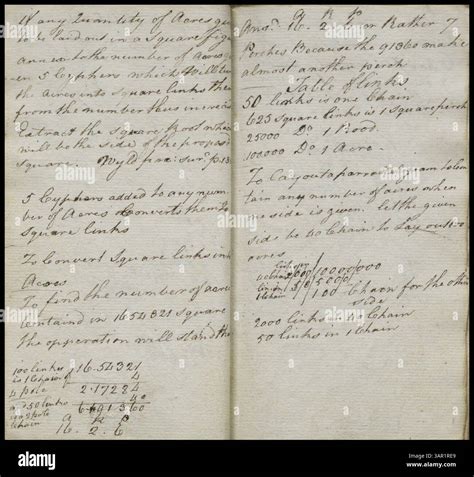 If any Quantity of Acres
to be laid out in a Square
to the number of Acres
5 Cyphers which will
the Acres into Square links then
from the number thus increased
Extract the Square Root which
will be the side of the proposed
Square.
5 Cyphers added to any num
ber of Acres Converts them to
Square links
To Convert Square links in
Acres
To find the number of acres
Containd in 1654321 Square
the operation will stand th
100 links
is 1 Chain of
4 pole
and 50 links
Chain
16.54321
4
2.17284
40
6.91360
A R P
16. 2. 6
A R P
Ans. 16. 2. or Rather 7
Perches Because the 91360 make
almost another perch
Table of links
50 links is one Chain
625 Square links is 1 Square perch
25000 Do 1 Rood
100000 Do 1 Acre
To Lay out a parralelogram to Con
tain any number of acres when
one side is given. let the given
side be 40 Chain to Lay out
acres
Chain for the other
side
2000 links in 40 Chain
50 links in 1 Chain
alamy
Image ID: 3AR1RE9
www.alamy.com